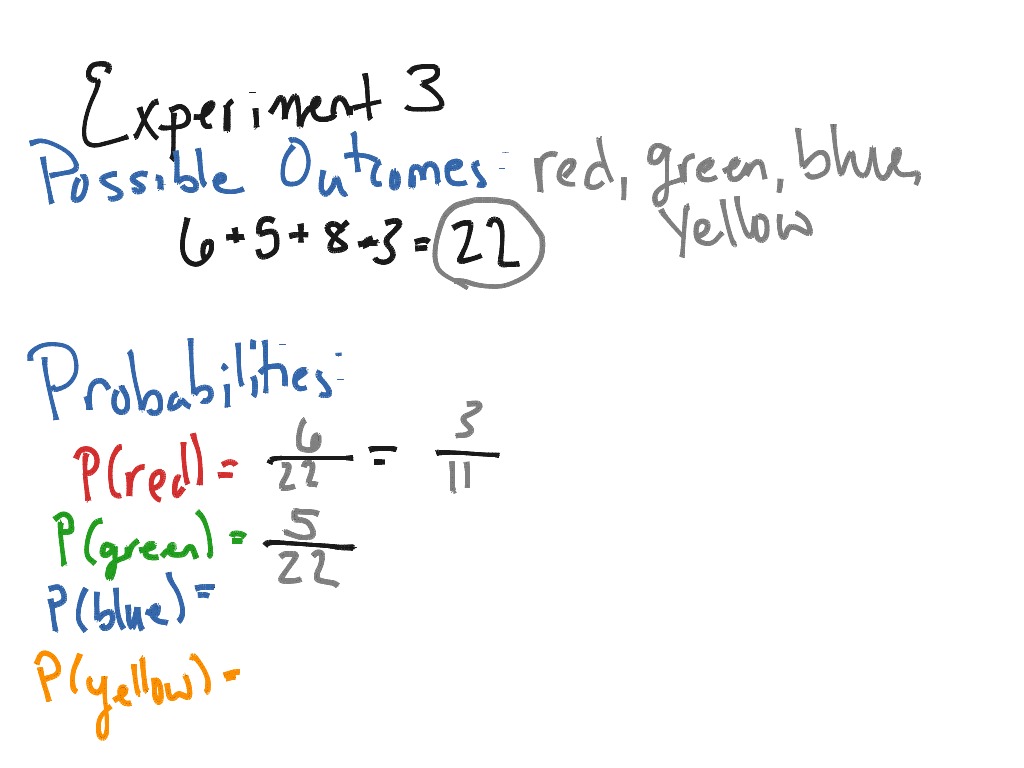 Experiment 3
Possible Outcomes: red, green, blue,
yellow
6 + 5 + 8 + 3 = 22
Probabilities:
P(red) = 6/22 = 3/11
P(green) = 5/22
P(blue) =
P(yellow) =